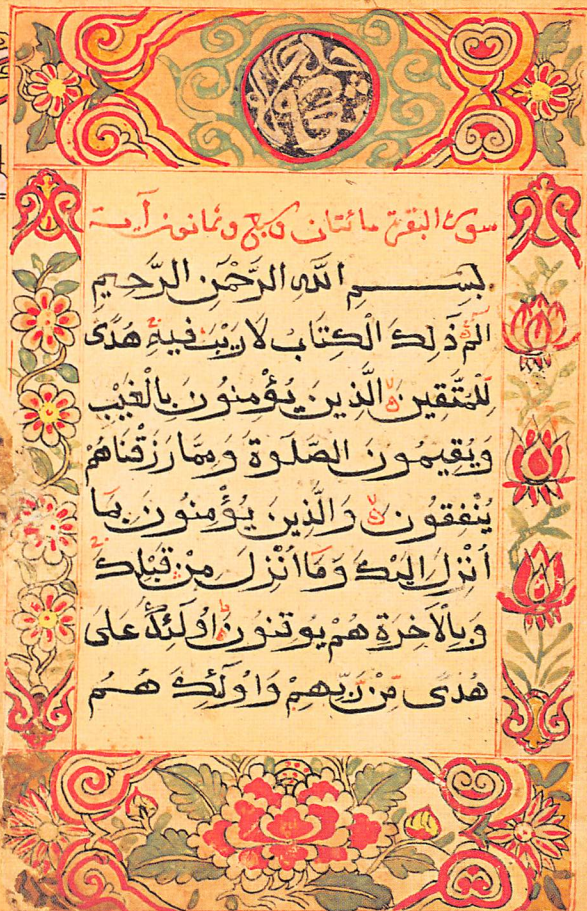 سورة البقرة مائتان وسبع وثمانون آية
بِسْمِ اللَّهِ الرَّحْمَٰنِ الرَّحِيمِ
الم ذَلِكَ الْكِتَابُ لَا رَيْبَ فِيهِ هُدًى
لِلْمُتَّقِينَ الَّذِينَ يُؤْمِنُونَ بِالْغَيْبِ
وَيُقِيمُونَ الصَّلَوةَ وَمِمَّا رَزَقْنَاهُمْ
يُنْفِقُونَ وَالَّذِينَ يُؤْمِنُونَ بِمَا
أُنْزِلَ إِلَيْكَ وَمَا أُنْزِلَ مِنْ قَبْلِكَ
وَبِالْآخِرَةِ هُمْ يُوقِنُونَ أُولَئِكَ عَلَى
هُدًى مِّنْ رَبِّهِمْ وَأُولَئِكَ هُمُ